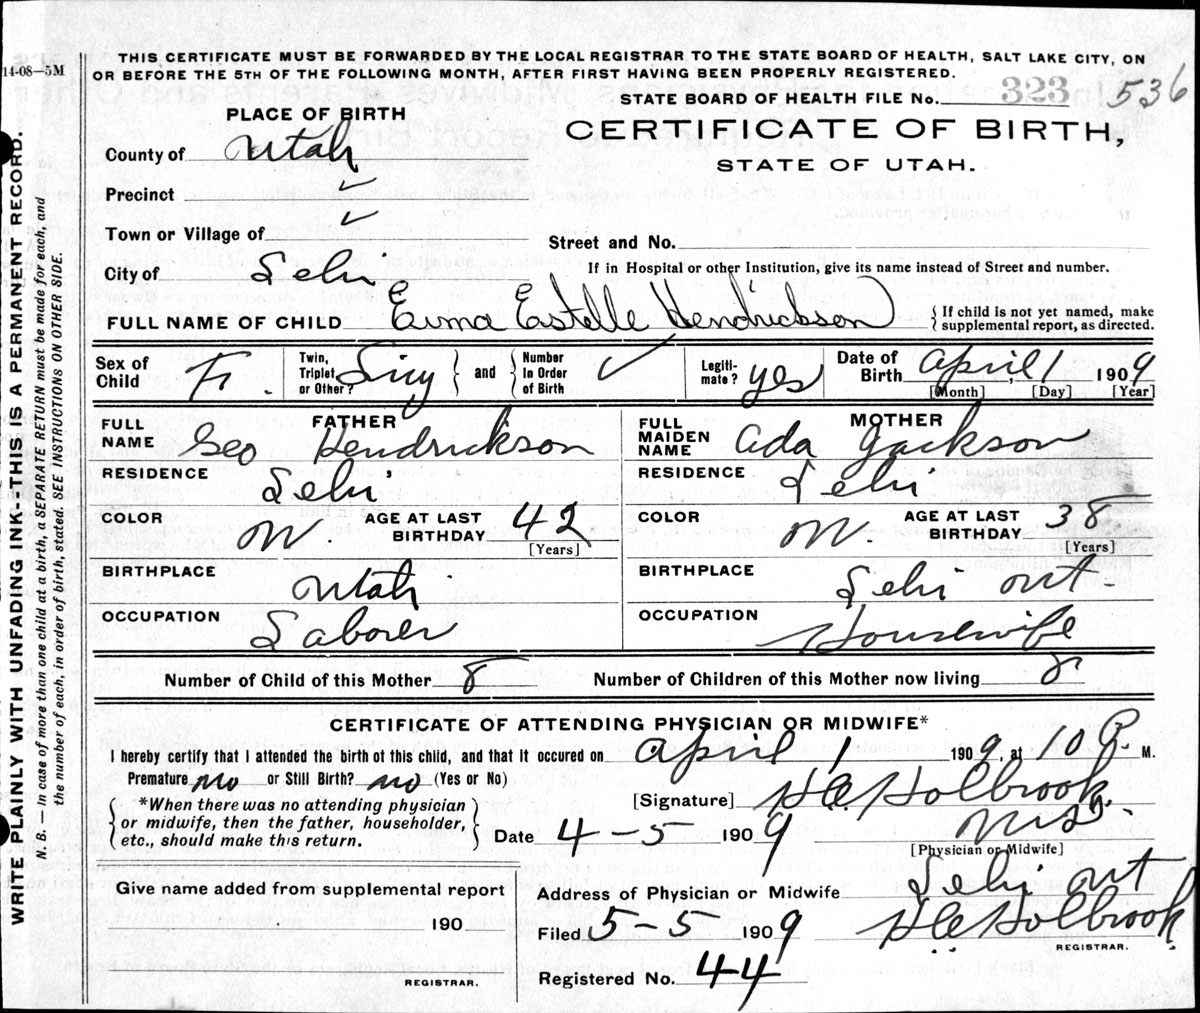 THIS CERTIFICATE MUST BE FORWARDED BY THE LOCAL REGISTRAR TO THE STATE BOARD OF HEALTH, SALT LAKE CITY, ON
14-08—5M
OR BEFORE THE 5TH OF THE FOLLOWING MONTH, AFTER FIRST HAVING BEEN PROPERLY REGISTERED.
STATE BOARD OF HEALTH FILE No. 323 536
PLACE OF BIRTH
CERTIFICATE OF BIRTH,
STATE OF UTAH.
County of Utah
Precinct ✓
Town or Village of ✓
Street and No.
City of Lehi
If in Hospital or other Institution, give its name instead of Street and number.
FULL NAME OF CHILD Erma Estelle Hendrickson
{ If child is not yet named, make
supplemental report, as directed.
Sex of Child F.
Twin, Triplet or Other? } and { Number In Order of Birth ✓
Legiti-mate? yes
Date of Birth April 1 1909
[Month] [Day] [Year]
FATHER
FULL NAME Geo Hendrickson
MOTHER
FULL MAIDEN NAME Ada Jackson
RESIDENCE Lehi
RESIDENCE Lehi
COLOR W. AGE AT LAST BIRTHDAY 42 [Years]
COLOR W AGE AT LAST BIRTHDAY 38 [Years]
BIRTHPLACE Utah
BIRTHPLACE Lehi Ut
OCCUPATION Laborer
OCCUPATION Housewife
Number of Child of this Mother 8
Number of Children of this Mother now living 8
CERTIFICATE OF ATTENDING PHYSICIAN OR MIDWIFE*
I hereby certify that I attended the birth of this child, and that it occured on April 1 1909, at 10 P. M.
Premature no or Still Birth? no (Yes or No)
{ *When there was no attending physician }
or midwife, then the father, householder,
etc., should make this return.
[Signature] H C Holbrook
Date 4-5 1909
[Physician or Midwife]
Give name added from supplemental report
190
REGISTRAR.
Address of Physician or Midwife Lehi Ut
Filed 5-5 1909 H C Holbrook
REGISTRAR.
Registered No. 44
WRITE PLAINLY WITH UNFADING INK—THIS IS A PERMANENT RECORD.
N. B. — In case of more than one child at a birth, a SEPARATE RETURN must be made for each and
the number of each, in order of birth, stated. SEE INSTRUCTIONS ON OTHER SIDE.